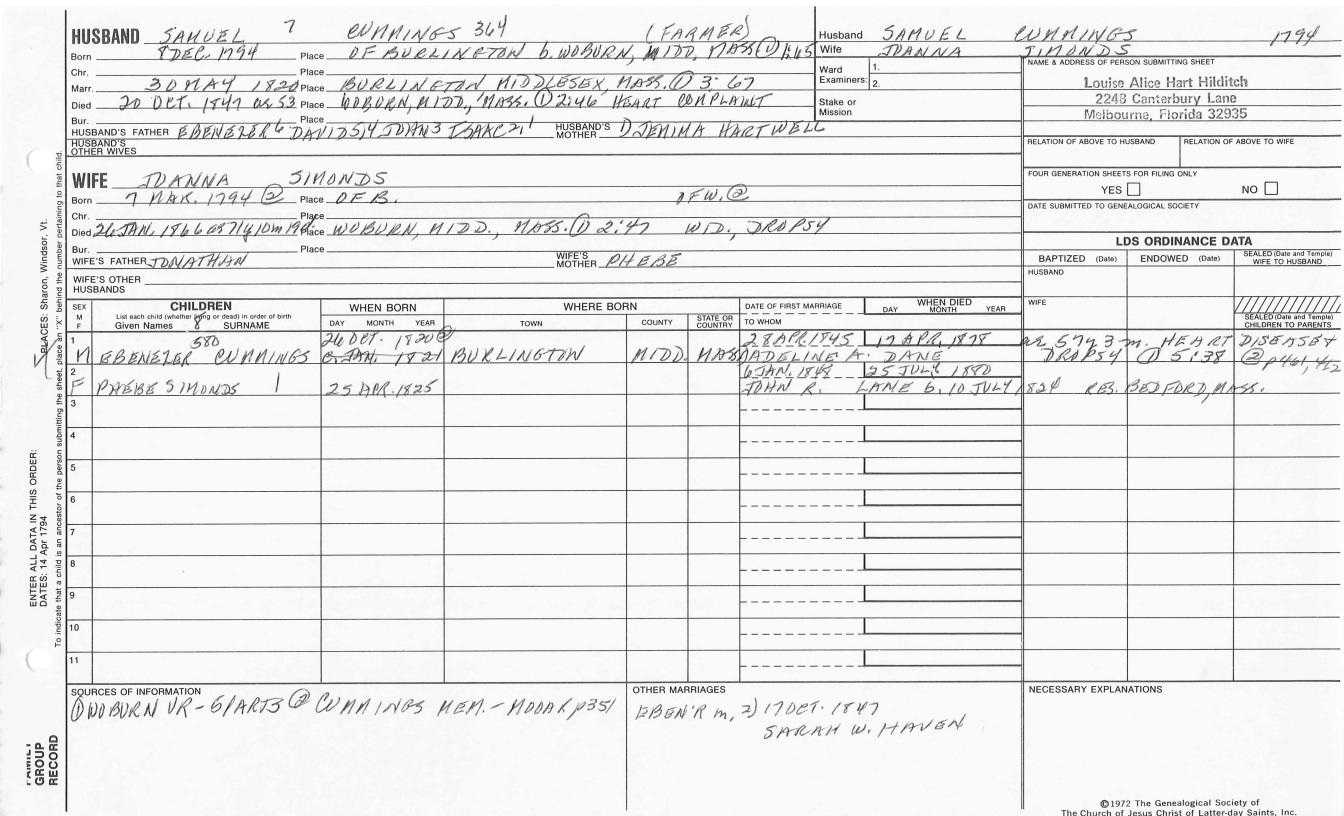 HUSBAND SAMUEL 7 CUMMINGS 364 (FARMER)
Born 8 DEC. 1794 Place OF BURLINGTON b. WOBURN, MIDD, MASS ① 1:65
Chr. Place
Marr. 30 MAY 1820 Place BURLINGTON MIDDLESEX, MASS. ① 3:67
Died 20 OCT. 1847 ae 53 Place WOBURN, MIDD, MASS. ① 2:46 HEART COMPLAINT
Bur. Place
HUSBAND'S FATHER EBENEZER 6 DAVID 5, 4 JOHN 3 ISAAC 2, 1 HUSBAND'S MOTHER DJEMIMA HARTWELL
HUSBAND'S OTHER WIVES
WIFE JOANNA SIMONDS
Born 7 MAR. 1794 ② Place OF B. OF W. ②
Chr. Place
Died 26 JAN. 1866 ae 71y 10m 19d. Place WOBURN, MIDD., MASS. ① 2:47 WID., DROPSY
Bur. Place
WIFE'S FATHER JONATHAN WIFE'S MOTHER PHEBE
WIFE'S OTHER HUSBANDS
Husband SAMUEL CUMMINGS 1794
Wife JOANNA SIMONDS
Ward Examiners: 1. 2.
Stake or Mission
NAME & ADDRESS OF PERSON SUBMITTING SHEET
Louise Alice Hart Hilditch
2248 Canterbury Lane
Melbourne, Florida 32935
RELATION OF ABOVE TO HUSBAND RELATION OF ABOVE TO WIFE
FOUR GENERATION SHEETS FOR FILING ONLY
YES NO
DATE SUBMITTED TO GENEALOGICAL SOCIETY
LDS ORDINANCE DATA
BAPTIZED (Date) ENDOWED (Date) SEALED (Date and Temple) WIFE TO HUSBAND
HUSBAND
WIFE
SEALED (Date and Temple) CHILDREN TO PARENTS
SEX M F CHILDREN WHEN BORN WHERE BORN DATE OF FIRST MARRIAGE WHEN DIED
List each child (whether living or dead) in order of birth
Given Names 8 SURNAME DAY MONTH YEAR TOWN COUNTY STATE OR COUNTRY TO WHOM DAY MONTH YEAR
1 580 26 OCT. 1820 ② 28 APR 1845 17 APR. 1878 ae 57y 3m. HEART DISEASE &
M EBENEZER CUMMINGS 6 JAN. 1821 BURLINGTON MIDD. MASS MADELINE A. DANE DROPSY ① 5:38 ② p461, 412
2 6 JAN. 1848 25 JULY 1880
F PHEBE SIMONDS 25 APR. 1825 JOHN R. LANE b. 10 JULY 1824 RES. BEDFORD, MASS.
3
4
5
6
7
8
9
10
11
SOURCES OF INFORMATION
① WOBURN VR - 6 PARTS ② CUMMINGS MEM. - MOOAR p351
OTHER MARRIAGES
EBEN'R m. 2) 17 OCT. 1847
SARAH W. HAVEN
NECESSARY EXPLANATIONS
©1972 The Genealogical Society of
The Church of Jesus Christ of Latter-day Saints, Inc.
PLACES: Sharon, Windsor, Vt.
ENTER ALL DATA IN THIS ORDER:
DATES: 14 Apr 1794
To indicate that a child is an ancestor of the person submitting the sheet, place an "X" behind the number pertaining to that child.
FAMILY
GROUP
RECORD